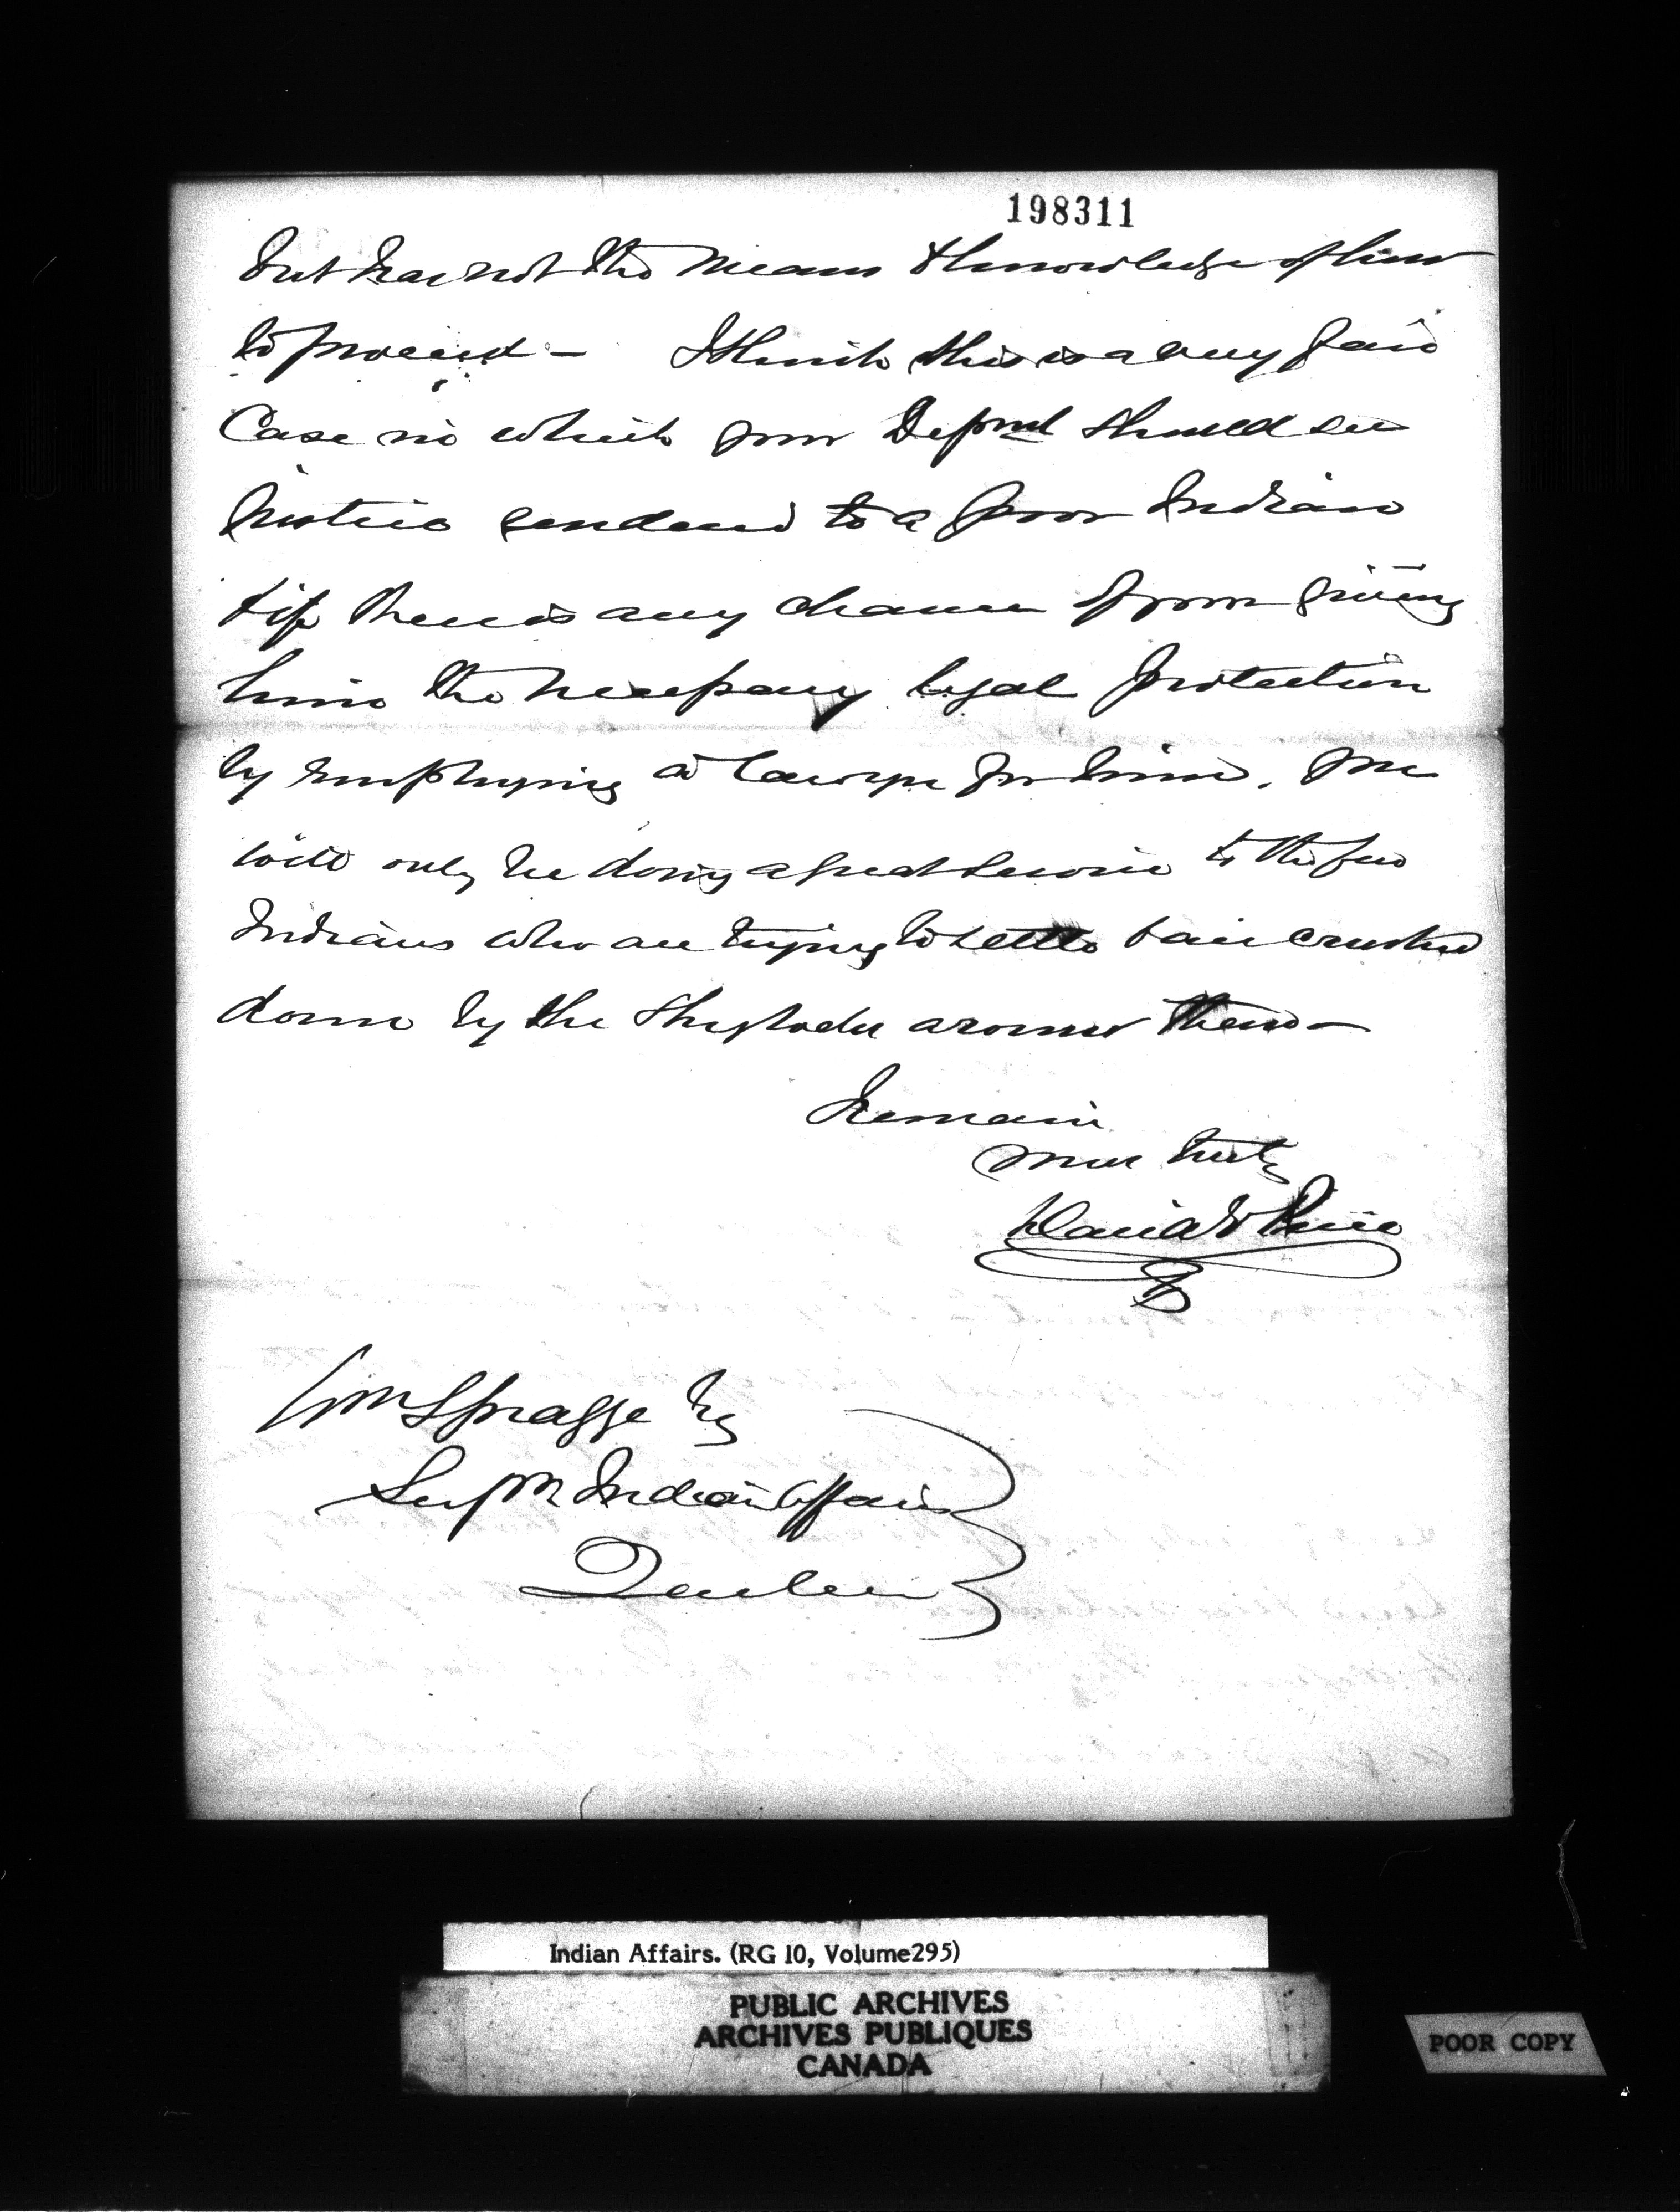 198311
but has not the means & knowledge of how
to proceed - I think this is a very fair
Case in which your Depmt should see
Justice rendered to a poor Indian
& if there is any chance of your giving
him the necessary legal protection
by employing a lawyer for him, you
will only be doing a great service to the few
Indians who are trying to settle & are crushed
down by the around them -
Remain
Your truly
David
Wm Spragge Esq
Supt Indian Affairs
Quebec
Indian Affairs. (RG 10, Volume295)
PUBLIC ARCHIVES
ARCHIVES PUBLIQUES
CANADA
POOR COPY